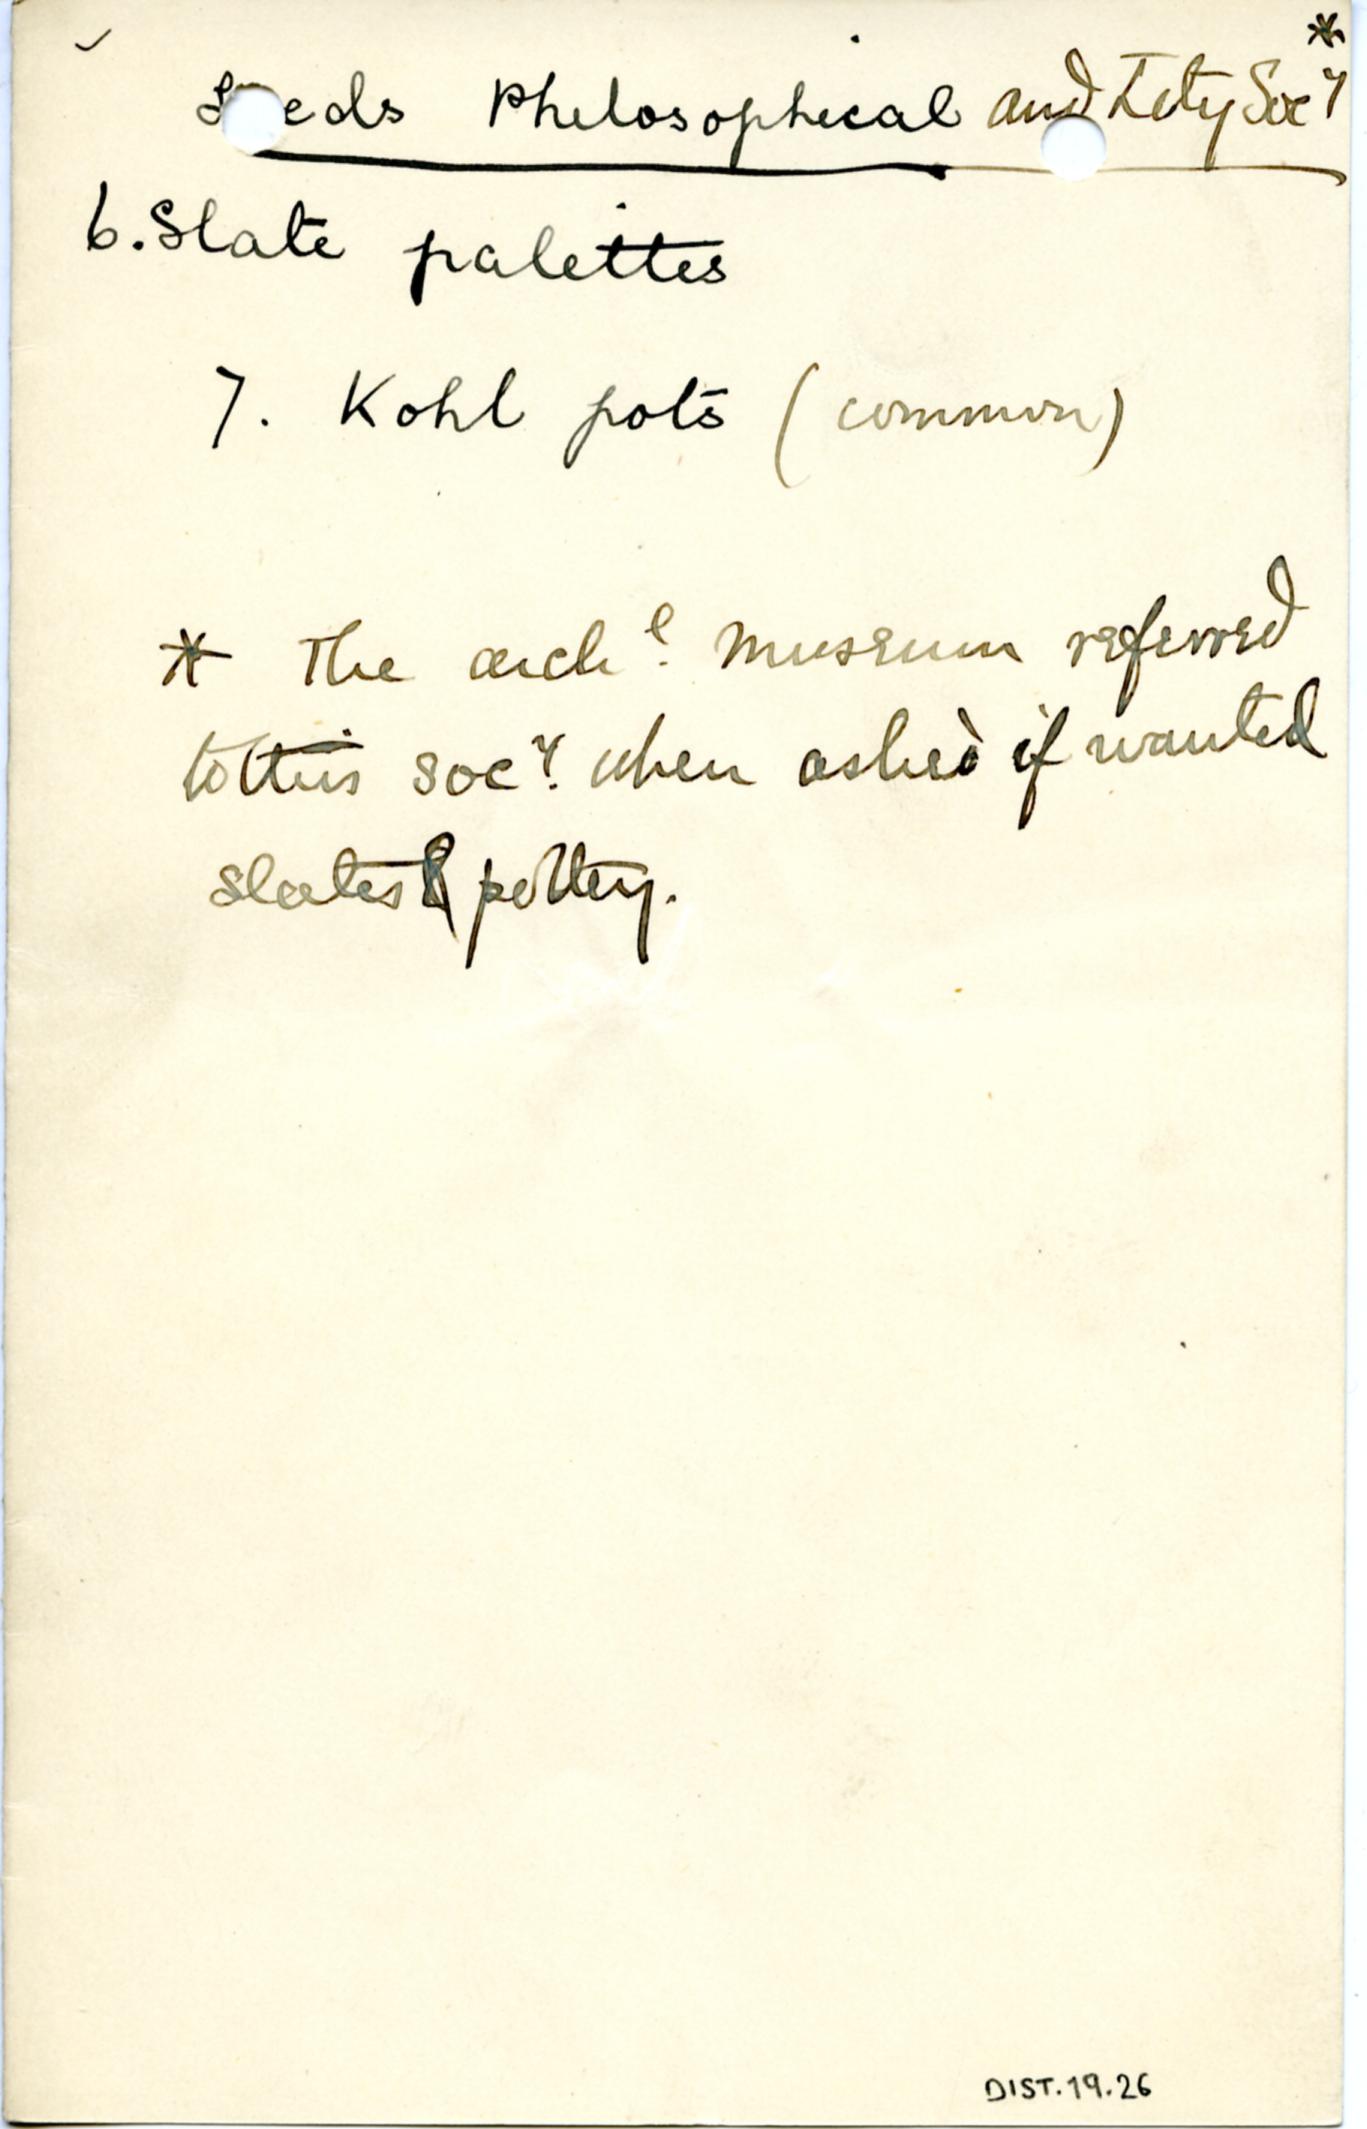 Leeds Philosophical and Lity Socy *
6. Slate palettes
7. Kohl pots (common)
* The archl. Museum referred
to this socy. when asked if wanted
slates & pottery.
DIST.19.26